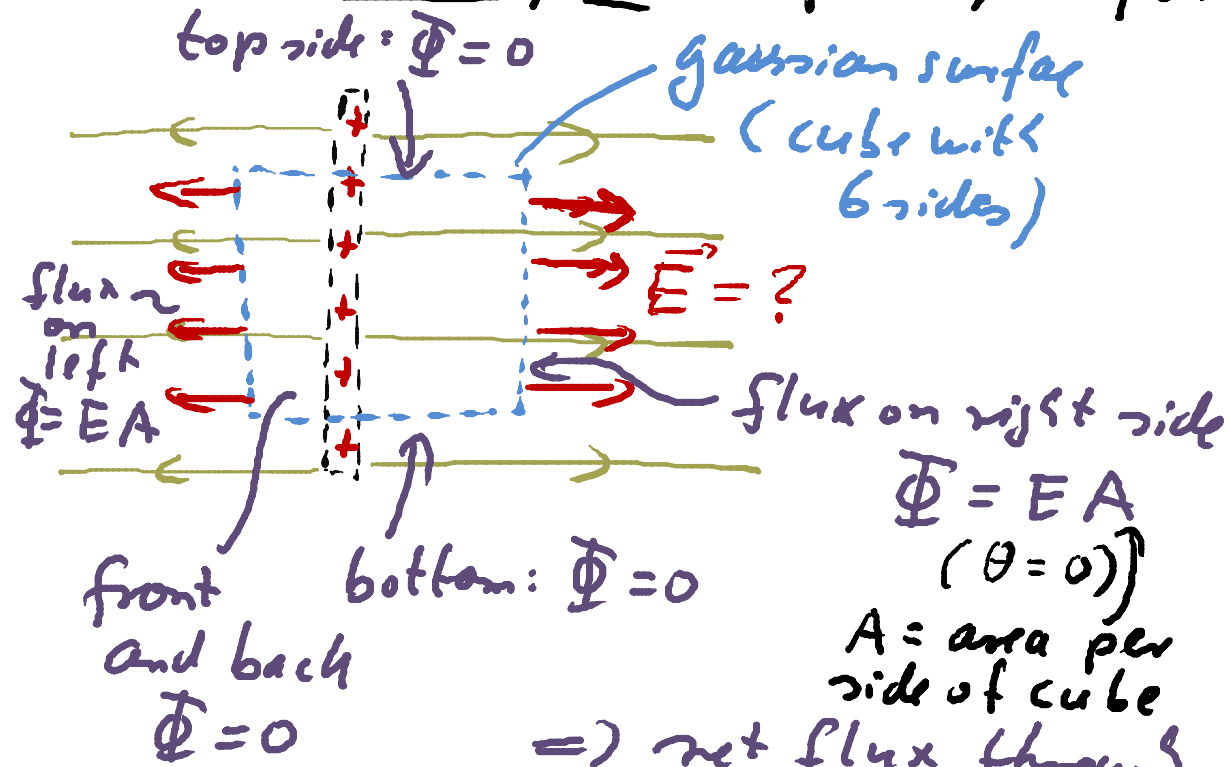 top side: Φ = 0
gaussian surfae
(cube with
6 sides)
+
+
+
+
+
+
E = ?
flux
on
left
Φ = E A
flux on right side
Φ = E A
(θ = 0)
A = area per
side of cube
front
and back
Φ = 0
bottom: Φ = 0
=> net flux through